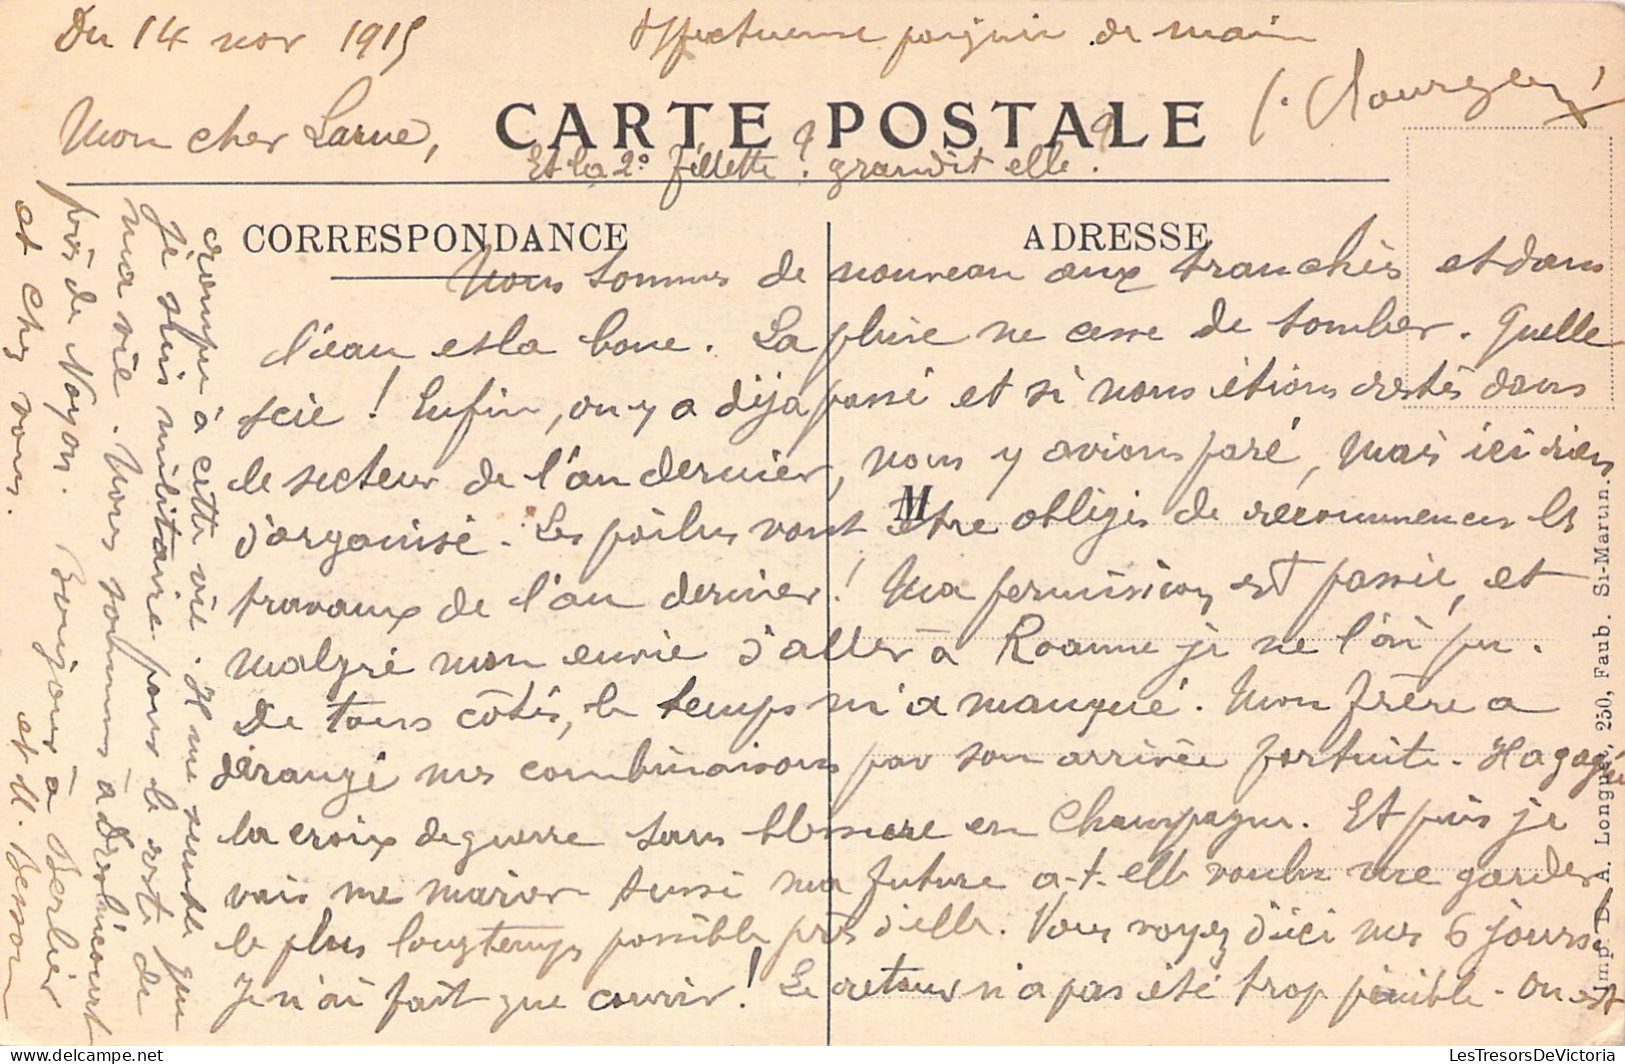 Du 14 nov 1915
Mon cher Larue,
CARTE POSTALE
CORRESPONDANCE
ADRESSE
M
Nous sommes de nouveau aux tranchées et dans
l'eau et la boue. La pluie ne cesse de tomber. Quelle
scie ! Enfin, on y a déja passé et si nous étions restés dans
le secteur de l'an dernier, nous y avions paré, Mais ici rien
d'organisé. Les poilus vont être obligés de recommencer les
travaux de l'an dernier ! Ma permission est passée, et
malgré mon envie d'aller à Roanne je ne l'ai pu.
De tous côtés, le temps m'a manqué. Mon frère a
dérangé mes combinaisons par son arrivée fortuite. Il a gagné
la croix de guerre sans blessure en Champagne. Et puis je
vais me marier aussi ma future a-t-elle voulu me garder
le plus longtemps possible près d'elle. Vous voyez d'ici mes 6 jours.
Je n'ai fait que courir ! Le retour n'a pas été trop pénible. On est
rompu à cette vie. Il me semble que
je suis militaire pour le reste de
ma vie. Nous sommes à Dreslincourt
près de Noyon. Bonjour à Berlier
et chez vous. et M. Besson
Et la 2e fillette ? grandit elle ?
Affectueuse poignée de main
Imp. D. A. Longuet, 250, Faub. St-Martin.
LesTresorsDeVictoria
© LesTresorsDeVictoria.com